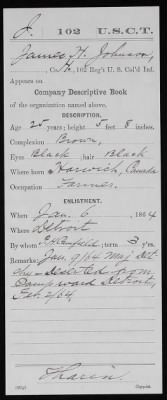 J. 102 U.S.C.T.
James H. Johnson,
Co. H, 102 Reg't U. S. Col'd Inf.
Appears on
Company Descriptive Book
of the organization named above.
DESCRIPTION.
Age 25 years; height 5 feet 8 inches.
Complexion Brown,
Eyes Black; hair Black
Where born Harwich, Canada
Occupation Farmer.
ENLISTMENT.
When Jan. 6, 1864
Where Detroit
By; term 3 y'rs.
Remarks: Jan. 9/64
Deserted from
Camp Ward Detroit,
Feb. 2/64.
Copyist.